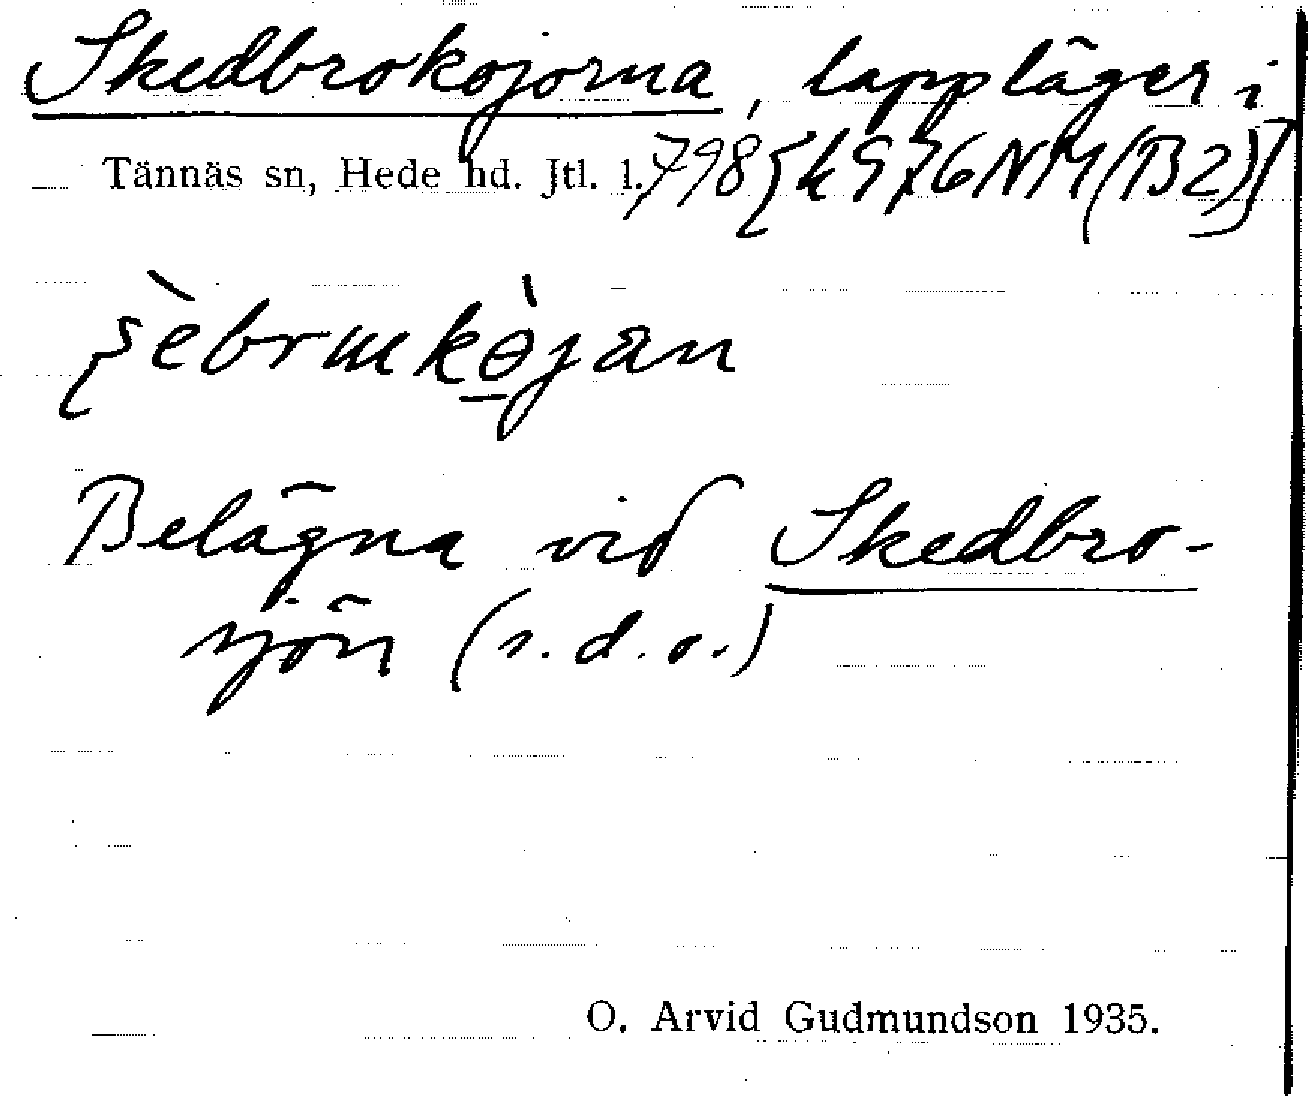 Skedbrokojorna, lappläger i
Tännäs sn, Hede hd. Jtl. l. 798
Belägna vid Skedbro-
sjön (s.d.o.)
O. Arvid Gudmundson 1935.